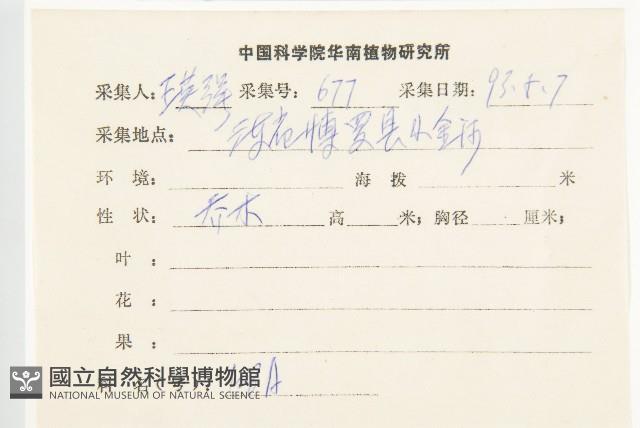 中国科学院华南植物研究所
采集人: 采集号: 677 采集日期: 93.5.7
采集地点: 博罗县小金
环 境: 海 拨 米
性 状: 乔木 高 米; 胸径 厘米;
叶 :
花 :
果 :
國立自然科學博物館
NATIONAL MUSEUM OF NATURAL SCIENCE